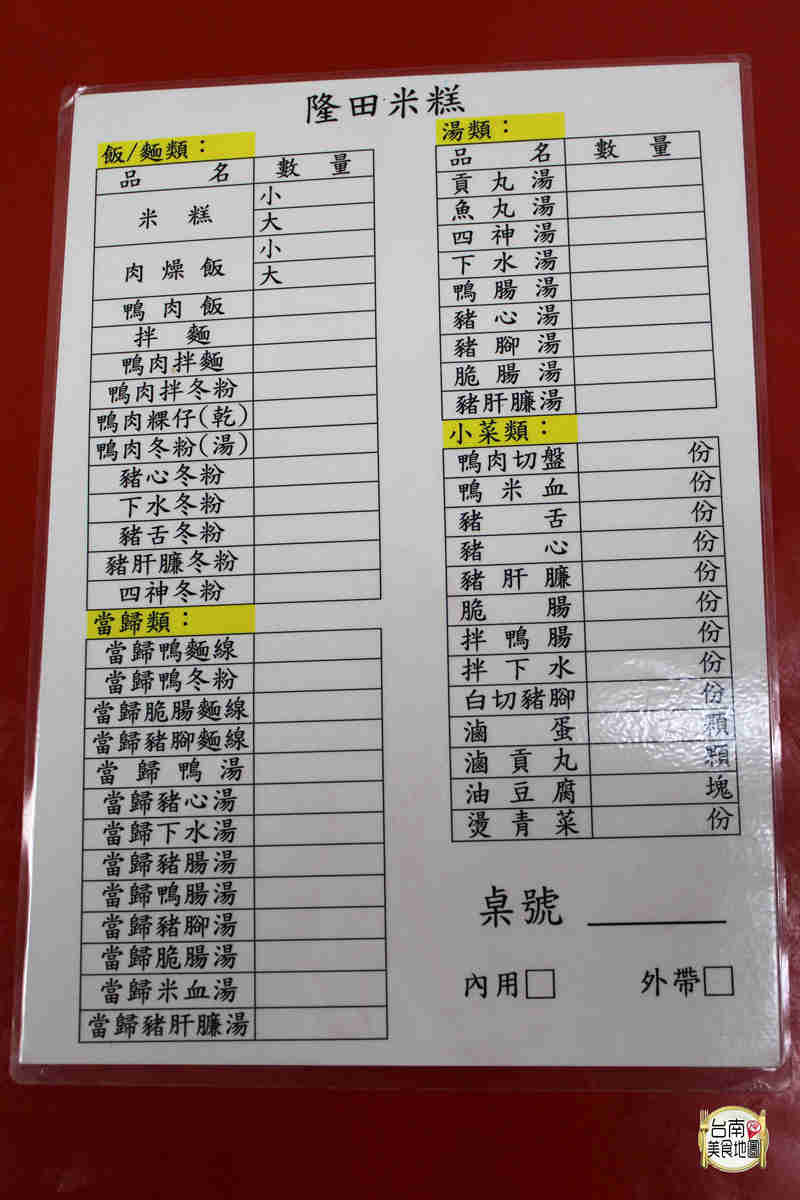 隆田米糕
飯/麵類：
品名 數量
米糕 小
大
肉燥飯 小
大
鴨肉飯
拌麵
鴨肉拌麵
鴨肉拌冬粉
鴨肉粿仔(乾)
鴨肉冬粉(湯)
豬心冬粉
下水冬粉
豬舌冬粉
豬肝臁冬粉
四神冬粉
當歸類：
當歸鴨麵線
當歸鴨冬粉
當歸脆腸麵線
當歸豬腳麵線
當歸鴨湯
當歸豬心湯
當歸下水湯
當歸豬腸湯
當歸鴨腸湯
當歸豬腳湯
當歸脆腸湯
當歸米血湯
當歸豬肝臁湯
湯類：
品名 數量
貢丸湯
魚丸湯
四神湯
下水湯
鴨腸湯
豬心湯
豬腳湯
脆腸湯
豬肝臁湯
小菜類：
鴨肉切盤 份
鴨米血 份
豬舌 份
豬心 份
豬肝臁 份
脆腸 份
拌鴨腸 份
拌下水 份
白切豬腳 份
滷蛋 顆
滷貢丸 顆
油豆腐 塊
燙青菜 份
桌號
內用□ 外帶□
台南
美食地圖